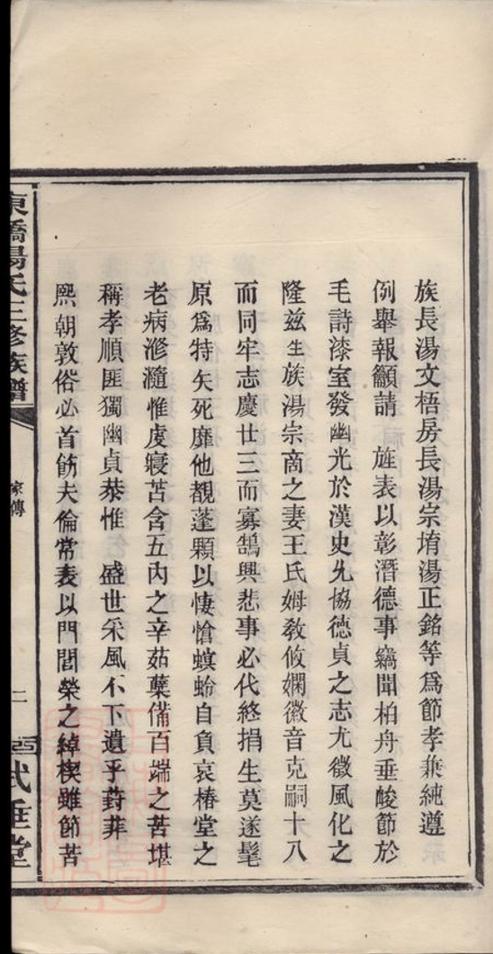 族長湯文梧房長湯宗堉湯正銘等爲節孝兼純遵
例舉報籲請　旌表以彰潛德事竊聞柏舟垂峻節於
毛詩漆室發幽光於漢史允協德貞之志尤徵風化之
隆茲生族湯宗商之妻王氏姆敎攸嫻徽音克嗣十八
而同牢志慶廿三而寡鵠興悲事必代終捐生莫遂髦
原爲特矢死靡他覩蓬顆以悽愴螟蛉自負哀椿堂之
老病滫瀡惟虔寢苫含五內之辛茹蘗備百端之苦堪
稱孝順匪獨幽貞恭惟　盛世采風不下遺乎葑菲
熙朝敦俗必首飭夫倫常表以門閭榮之綽楔雖節苦
東橋湯氏三修族譜
家傳
二
式垂堂